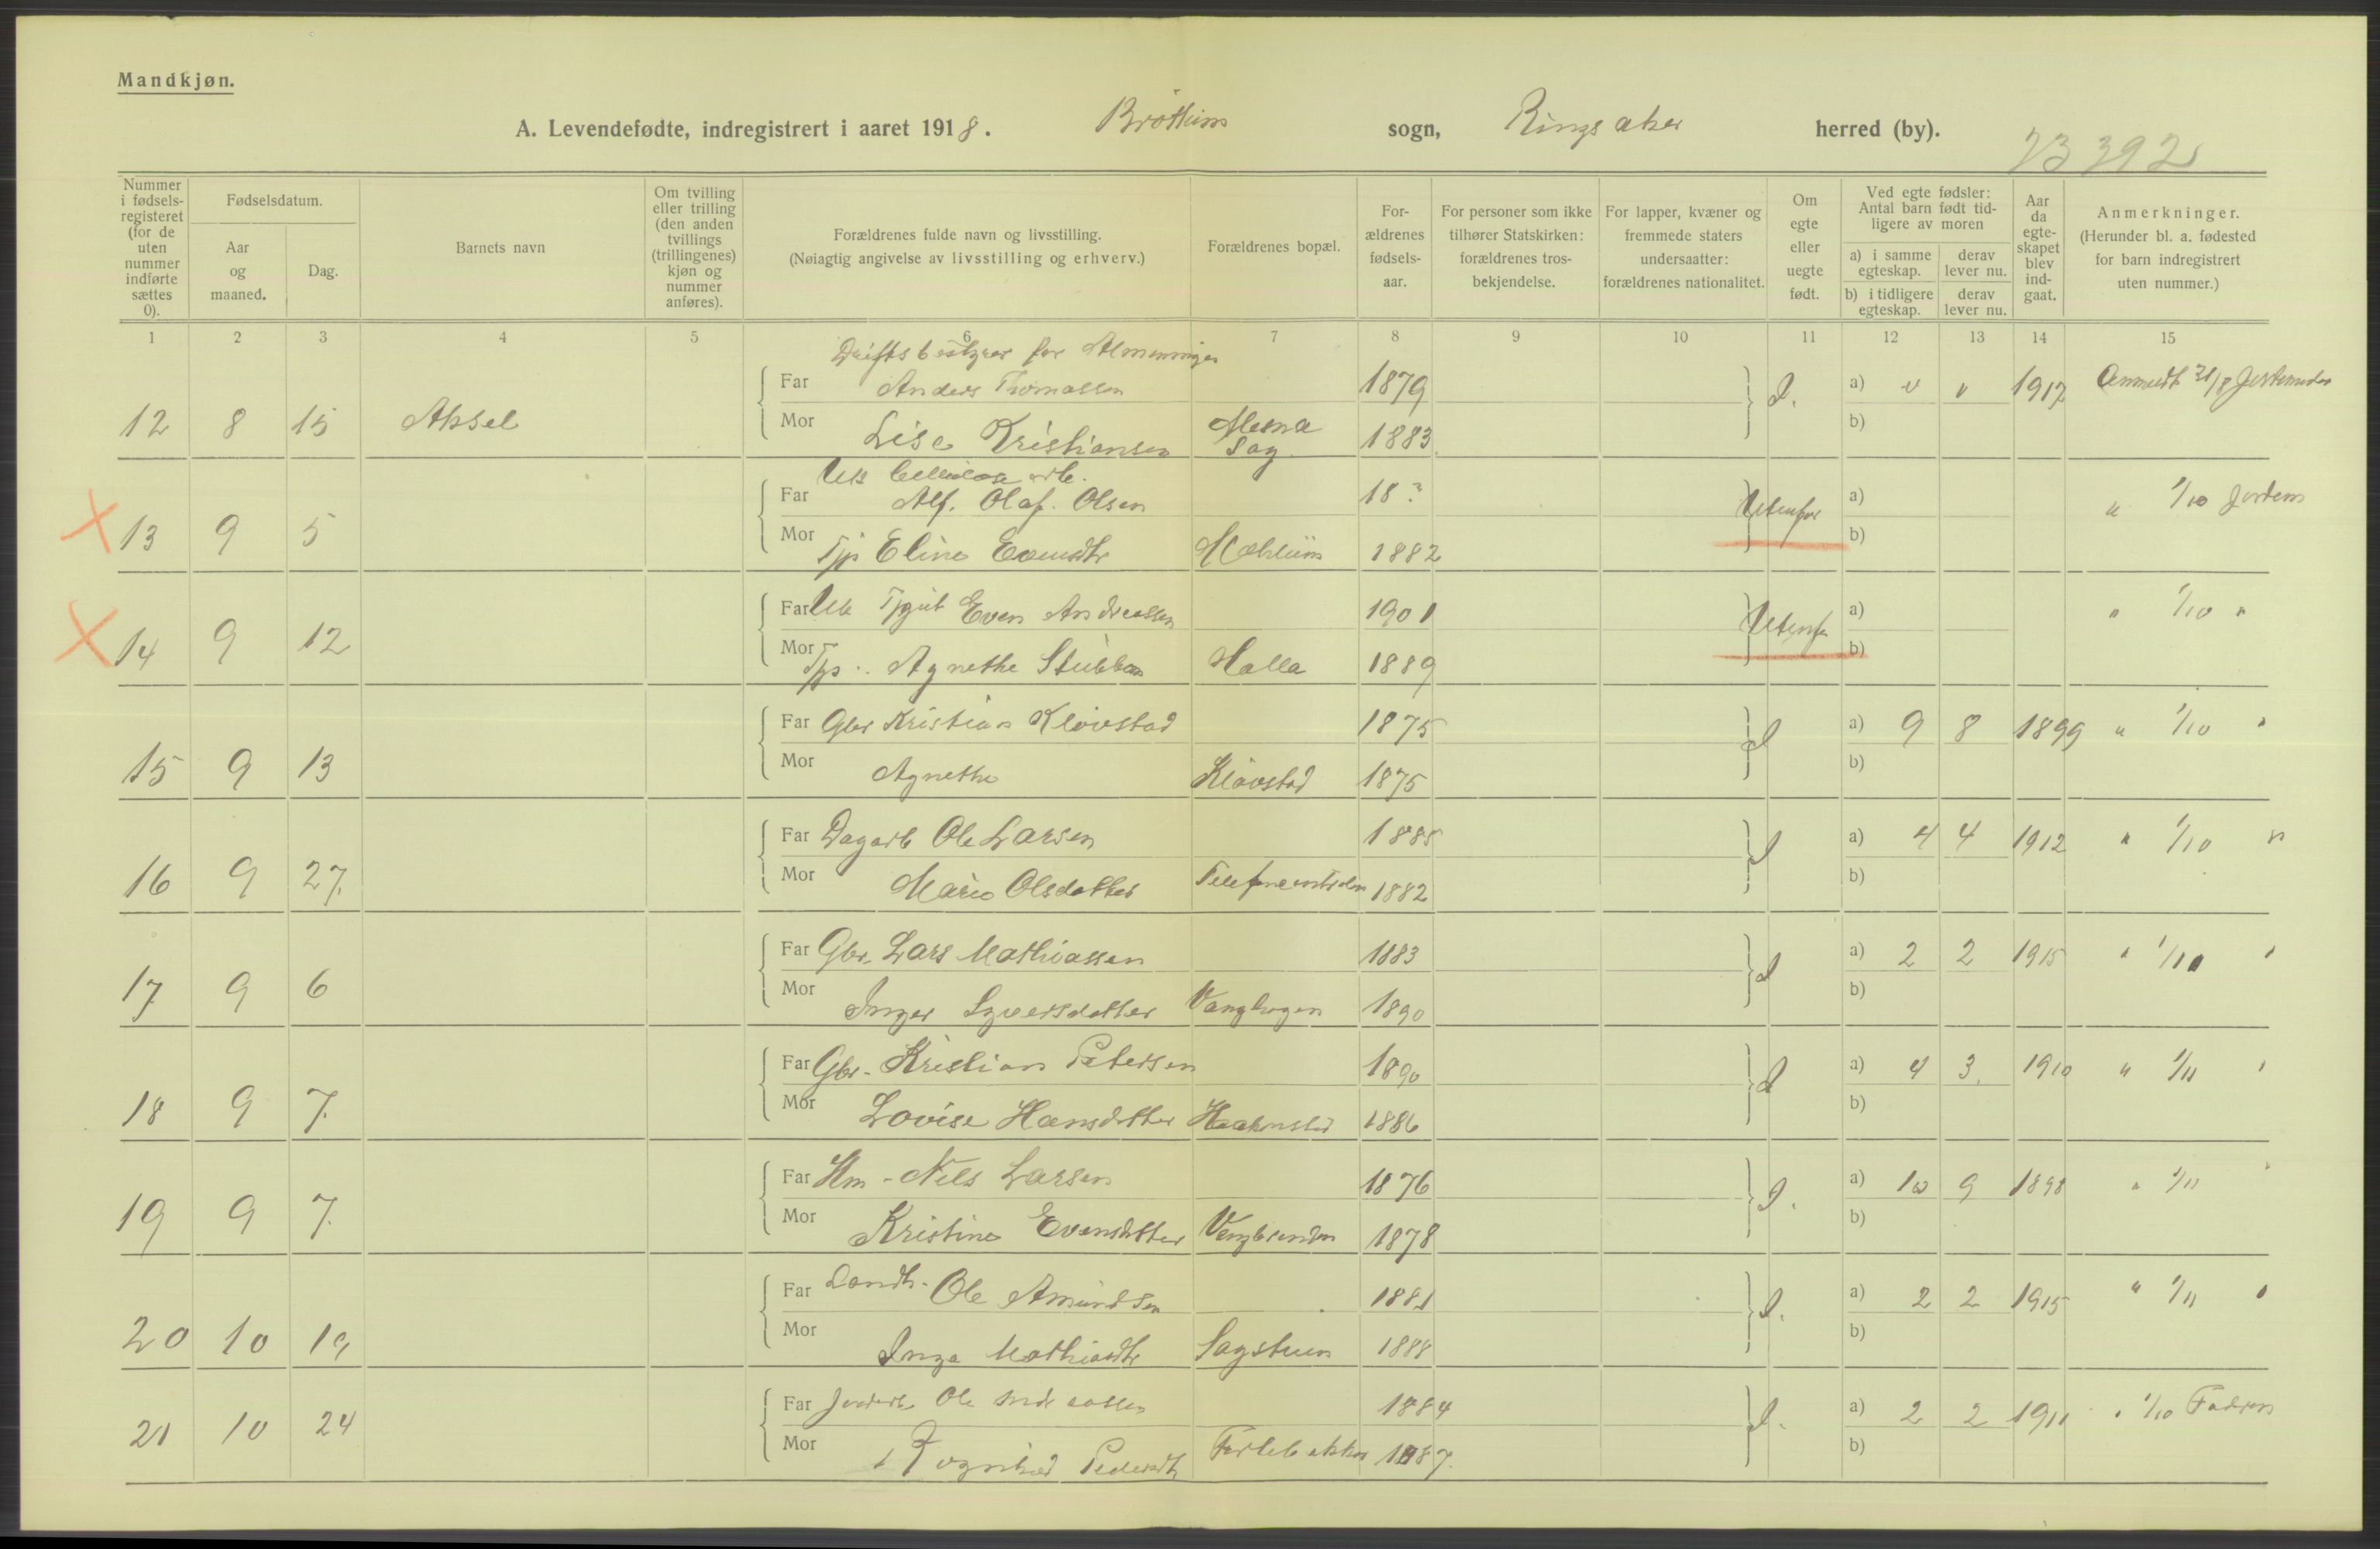 Mandkjøn.
A. Levendefødte, indregistrert i aaret 1918. Brøttum sogn, Ringsaker herred (by).
23 392
Nummer i fødsels-registeret (for de uten nummer indførte sættes 0).
Fødselsdatum.
Aar og maaned.
Dag.
Barnets navn
Om tvilling eller trilling (den anden tvillings (trillingenes) kjøn og nummer anføres).
Forældrenes fulde navn og livsstilling.
(Nøiagtig angivelse av livsstilling og erhverv.)
Forældrenes bopæl.
For-ældrenes fødsels-aar.
For personer som ikke tilhører Statskirken: forældrenes tros-bekjendelse.
For lapper, kvæner og fremmede staters undersaatter: forældrenes nationalitet.
Om egte eller uegte født.
Ved egte fødsler: Antal barn født tid-ligere av moren
a) i samme egteskap.
derav lever nu.
b) i tidligere egteskap.
derav lever nu.
Aar da egte-skapet blev ind-gaat.
Anmerkninger.
(Herunder bl. a. fødested for barn indregistrert uten nummer.)
1 2 3 4 5 6 7 8 9 10 11 12 13 14 15
Driftsbestyrer for Almenningen
Far Anders Thomassen 1879 a) 1917 Anmeldt 31/8
12 8 15 Aksel Mor Lise Kristiansen Mesna Sag 1883 b)
Cellulose arb.
Far Alf. Olaf. Olsen 18 ? Utenfor a) " 1/10 Jordem
13 9 5 Mor Tjp Eline Evensdtr Mæhlum 1882 b)
Far Tjgut Even Andreassen 1901 Utenfor a) " 1/10 "
14 9 12 Mor Tjp. Agnethe Stubben Halla 1889 b)
Far Gbr Kristian Kløvstad 1875 a) 9 8 1899 " 1/10 "
15 9 13 Mor Agnethe Kløvstad 1875 b)
Far Dagarb Ole Larsen 1885 a) 4 4 1912 " 1/10 "
16 9 27 Mor Marie Olsdatter 1882 b)
Far Gbr. Lars Mathiassen 1883 a) 2 2 1915 "
17 9 6 Mor Inger Syversdatter Vanghagen 1890 b)
Far Gbr. Kristian Petersen 1890 a) 4 3 1910 " 1/11 "
18 9 7 Mor Lovise Hansdatter 1886 b)
Far Hm - Nils Larsen 1876 a) 10 9 1898 " 1/11 "
19 9 7 Mor Kristine Evensdatter 1878 b)
Far Landh. Ole Amundsen 1881 a) 2 2 1915 " 1/11 "
20 10 19 Mor Inga Mathiasdtr Sagstuen 1888 b)
Far Jordarb Ole Andreassen 1884 a) 2 2 1911 " 1/10 Faderen
21 10 24 Mor Rognhild Pedersdtr 1887 b)